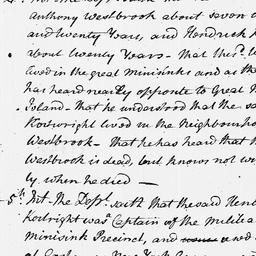 Anthony Westbrook about seven a
and twenty Years, and Hendrick K
about twenty Years - That this
lived in the great Minisinks and as th
has heard nearly opposite to Great M
Island - that he understood that the sa
Kortright lived in the Neighbourho
Westbrook - That he has heard that th
Westbrook is dead, but knows not wh
ly. when he died —
5th. Int. the Dept. saith that the said Hen
Kortright was Captain of the Militia
Minisink Precinct, and and